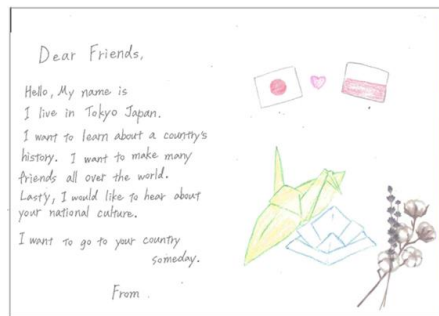 Dear Friends,
Hello, My name is
I live in Tokyo Japan.
I want to learn about a country's
history. I want to make many
friends all over the world.
Lasty, I would like to hear about
your national culture.
I want to go to your country
someday.
From